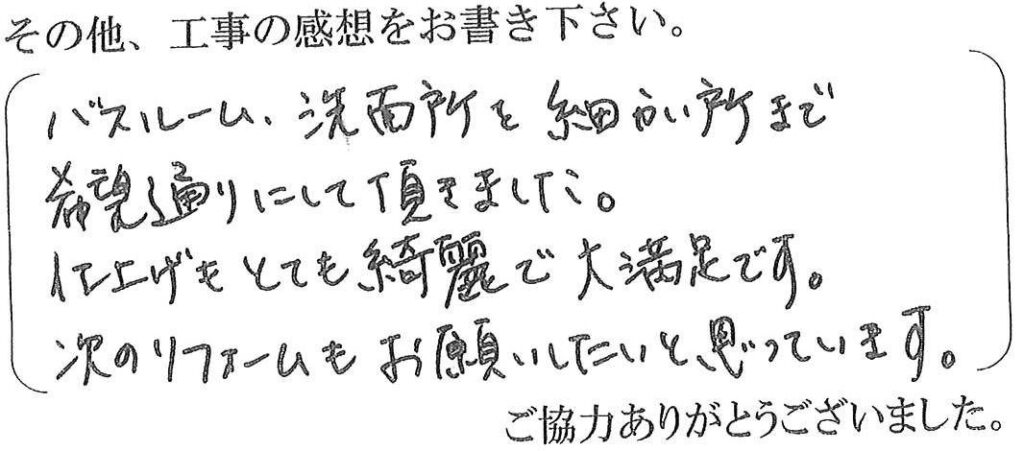 その他、工事の感想をお書き下さい。
バスルーム、洗面所を細かい所まで
希望通りにして頂きました。
仕上げもとても綺麗で大満足です。
次のリフォームもお願いしたいと思っています。
ご協力ありがとうございました。